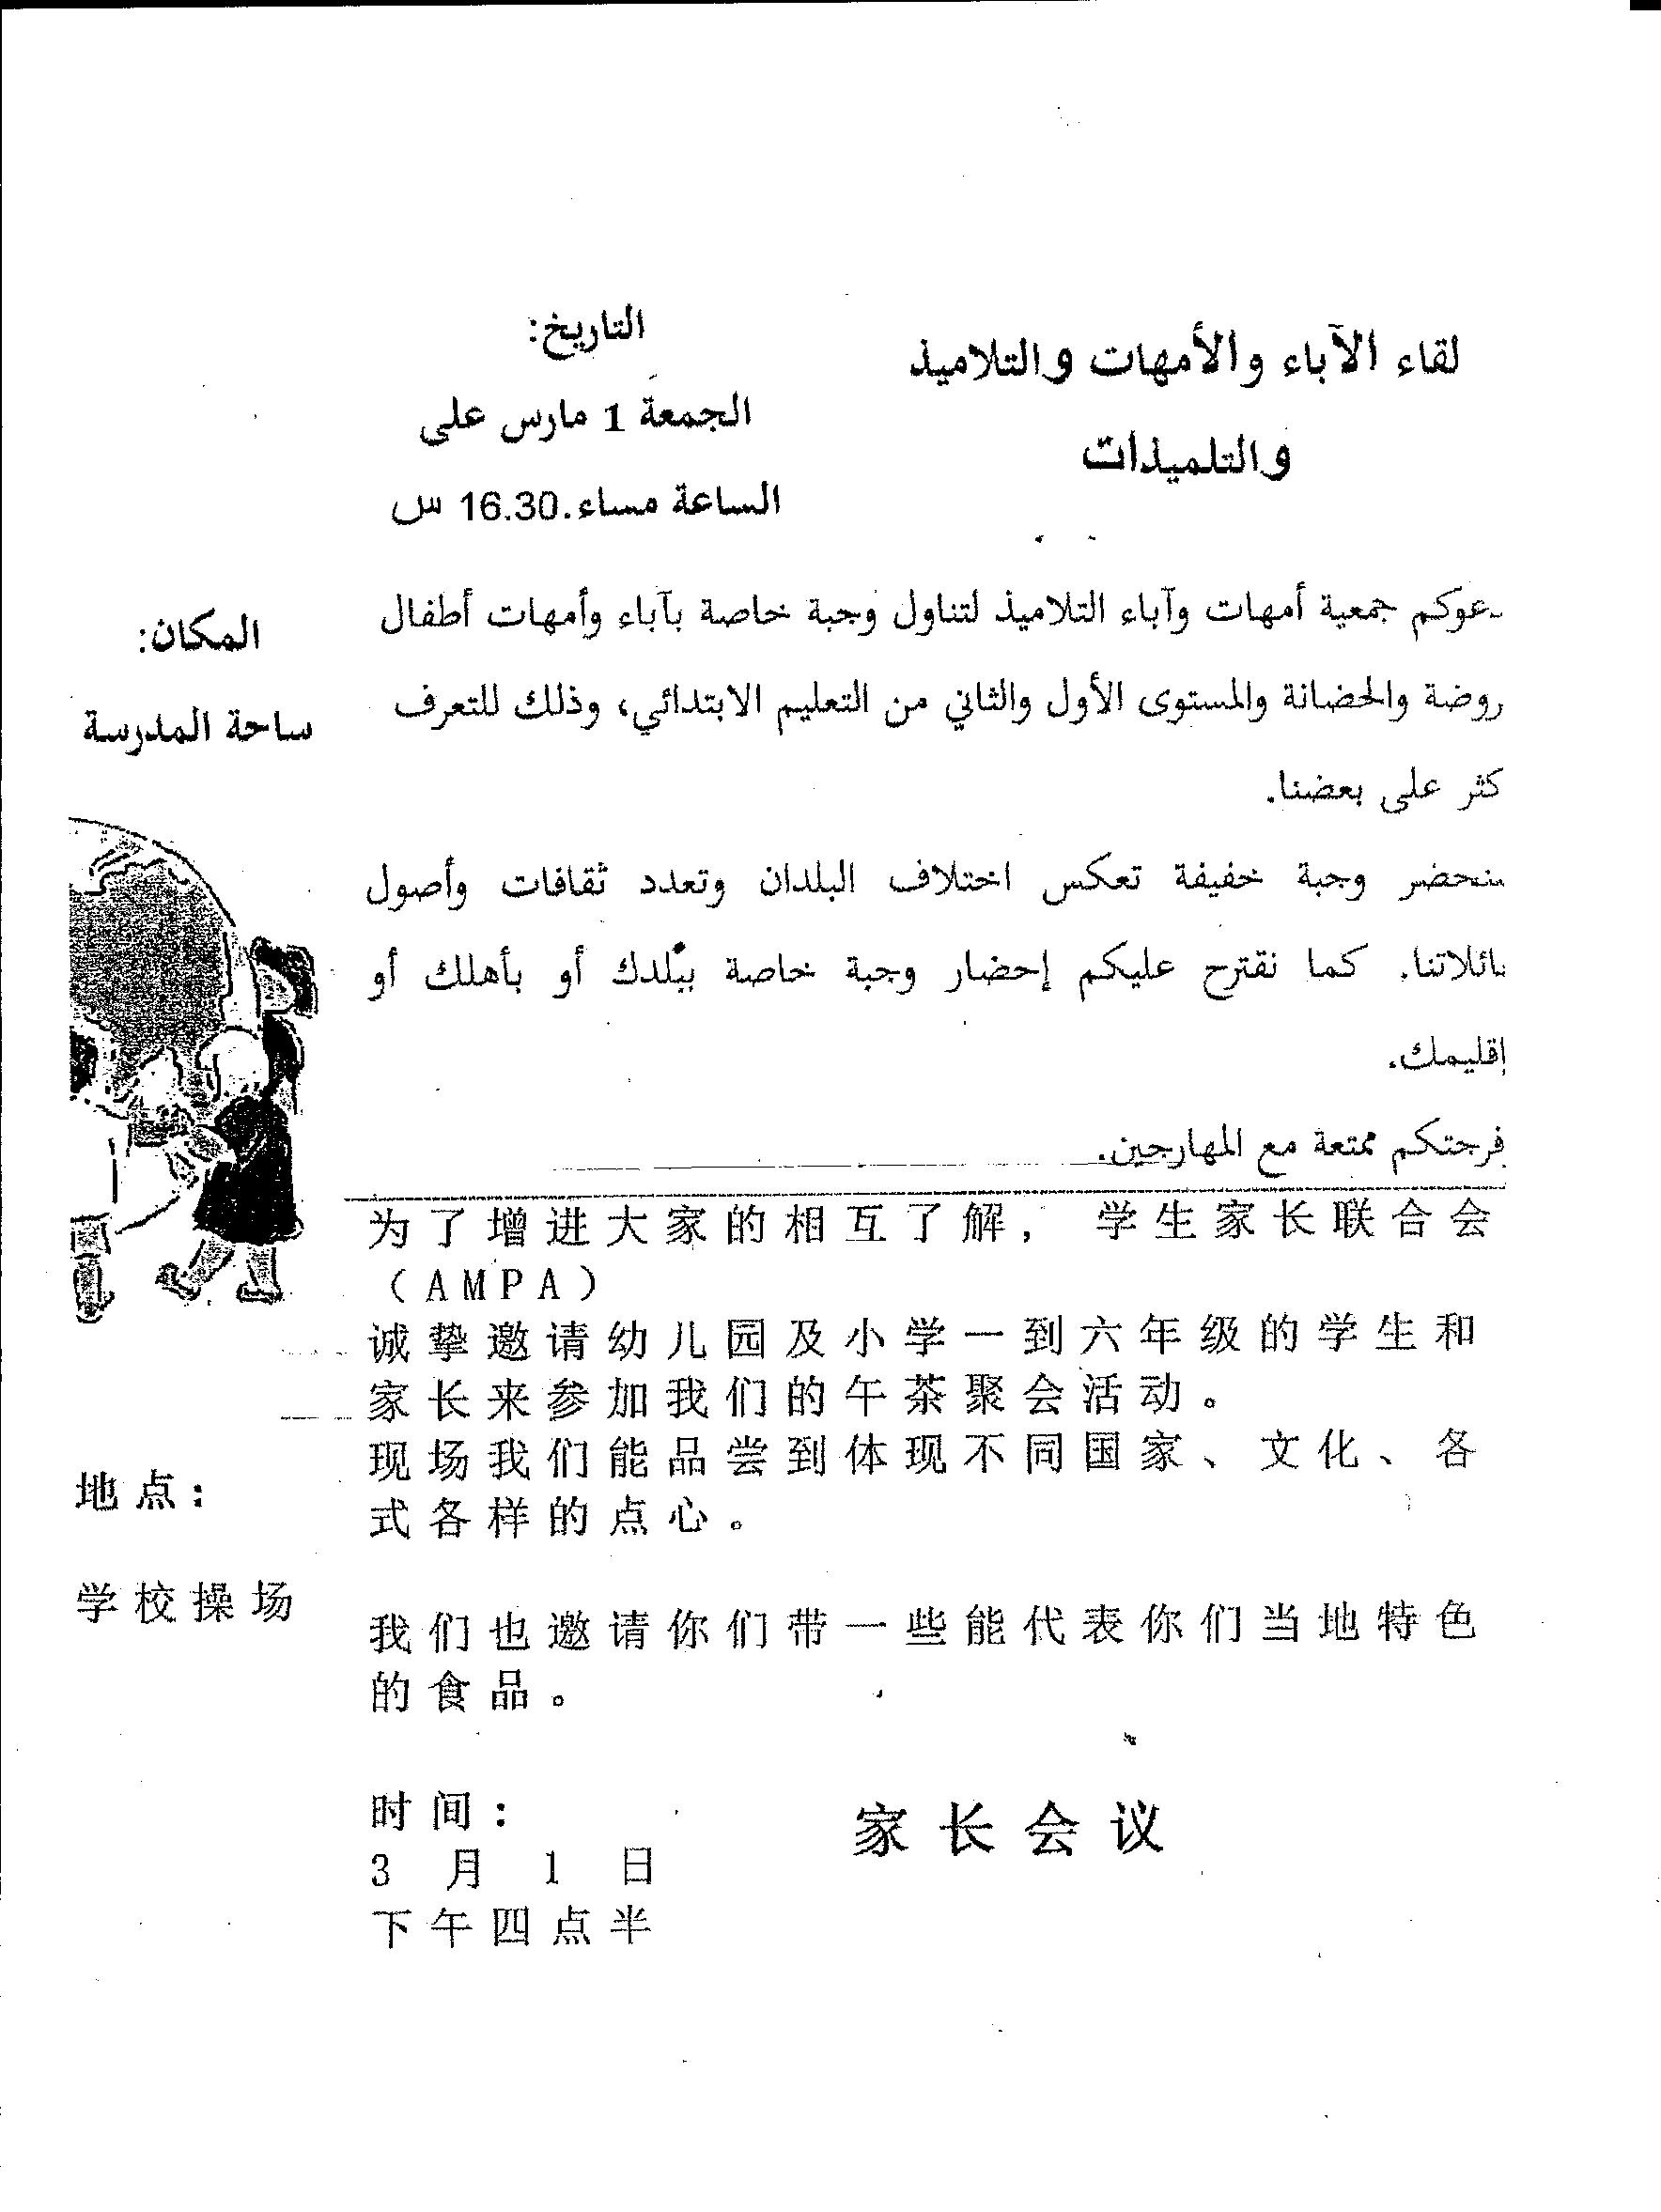 لقاء الآباء والأمهات والتلاميذ
والتلميذات
التاريخ:
الجمعة 1 مارس على
الساعة مساء.16.30 س
المكان:
ساحة المدرسة
عوكم جمعية أمهات وآباء التلاميذ لتناول وجبة خاصة بآباء وأمهات أطفال
روضة والحضانة والمستوى الأول والثاني من التعليم الابتدائي، وذلك للتعرف
كثر على بعضنا.
نحضر وجبة خفيفة تعكس اختلاف البلدان وتعدد ثقافات وأصول
ائلاتنا. كما نقترح عليكم إحضار وجبة خاصة ببلدك أو بأهلك أو
إقليمك.
فرجتكم ممتعة مع المهارجين.
为了增进大家的相互了解, 学生家长联合会
(AMPA)
诚挚邀请幼儿园及小学一到六年级的学生和
家长来参加我们的午茶聚会活动。
现场我们能品尝到体现不同国家、文化、各
式各样的点心。
地点:
学校操场
我们也邀请你们带一些能代表你们当地特色
的食品。
时间:
3 月 1 日
下午四点半
家长会议